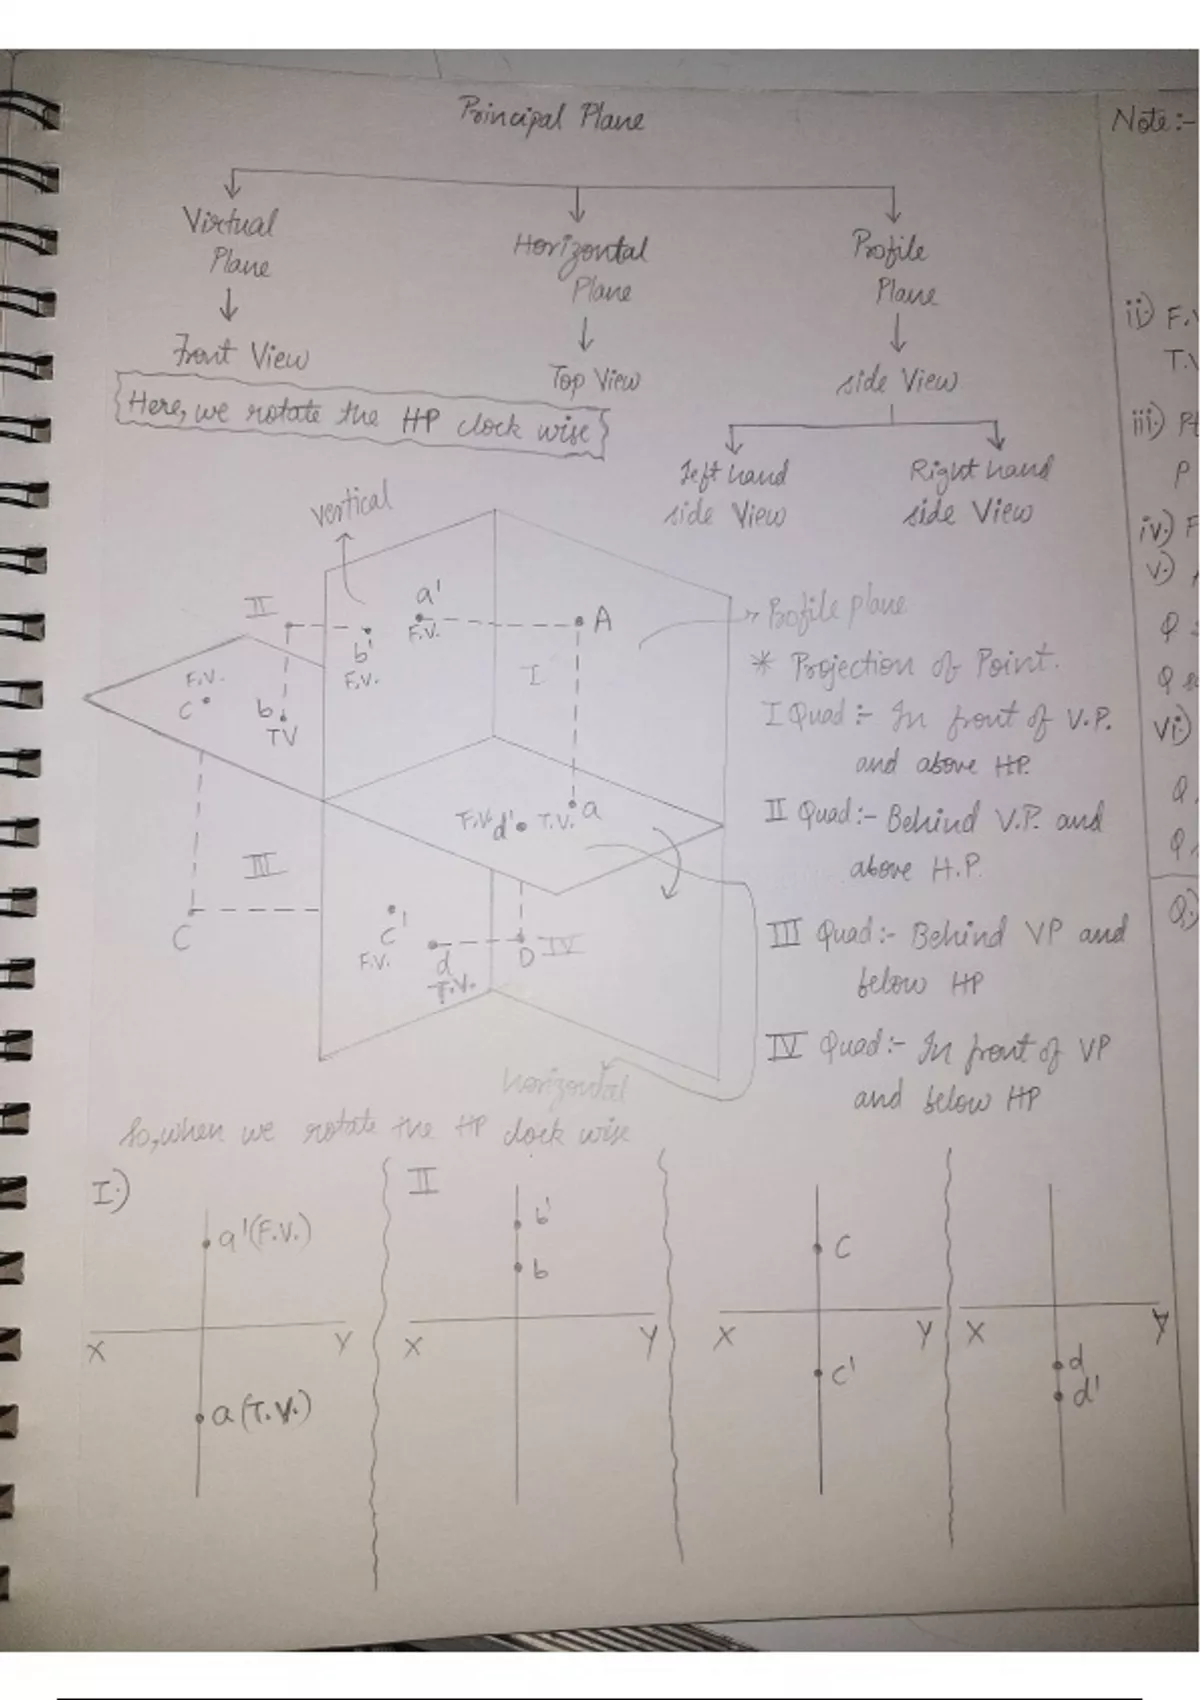 Principal Plane
Note:-
Virtual
Plane
Front View
Horizontal
Plane
Top View
Profile
Plane
side View
Left hand
side View
Right hand
side View
Here, we rotate the HP clock wise
ii) F.V
T.V
iii)
P
iv) F
v)
vi)
vertical
II
a'
F.V.
A
b'
F.V.
I
F.V.
c
b
TV
F.V. d' T.V. a
III
C
c'
F.V.
d
T.V.
D IV
horizontal
Profile plane
* Projection of Point.
I Quad :- In front of V.P.
and above HP.
II Quad :- Behind V.P. and
above H.P.
III Quad :- Behind VP and
below HP
IV Quad :- In front of VP
and below HP
So, when we rotate the HP clock wise
I.)
a'(F.V.)
X Y
a (T.V.)
II
b'
b
X Y
c
X Y
c'
X Y
d
d'